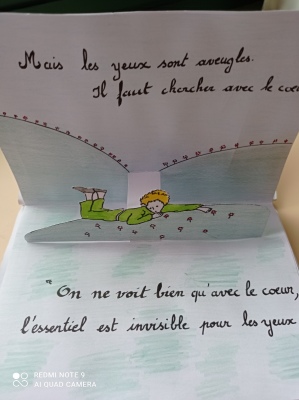 Mais les yeux sont aveugles.
Il faut chercher avec le cœu
"On ne voit bien qu'avec le cœur,
l'essentiel est invisible pour les yeux
REDMI NOTE 9
AI QUAD CAMERA